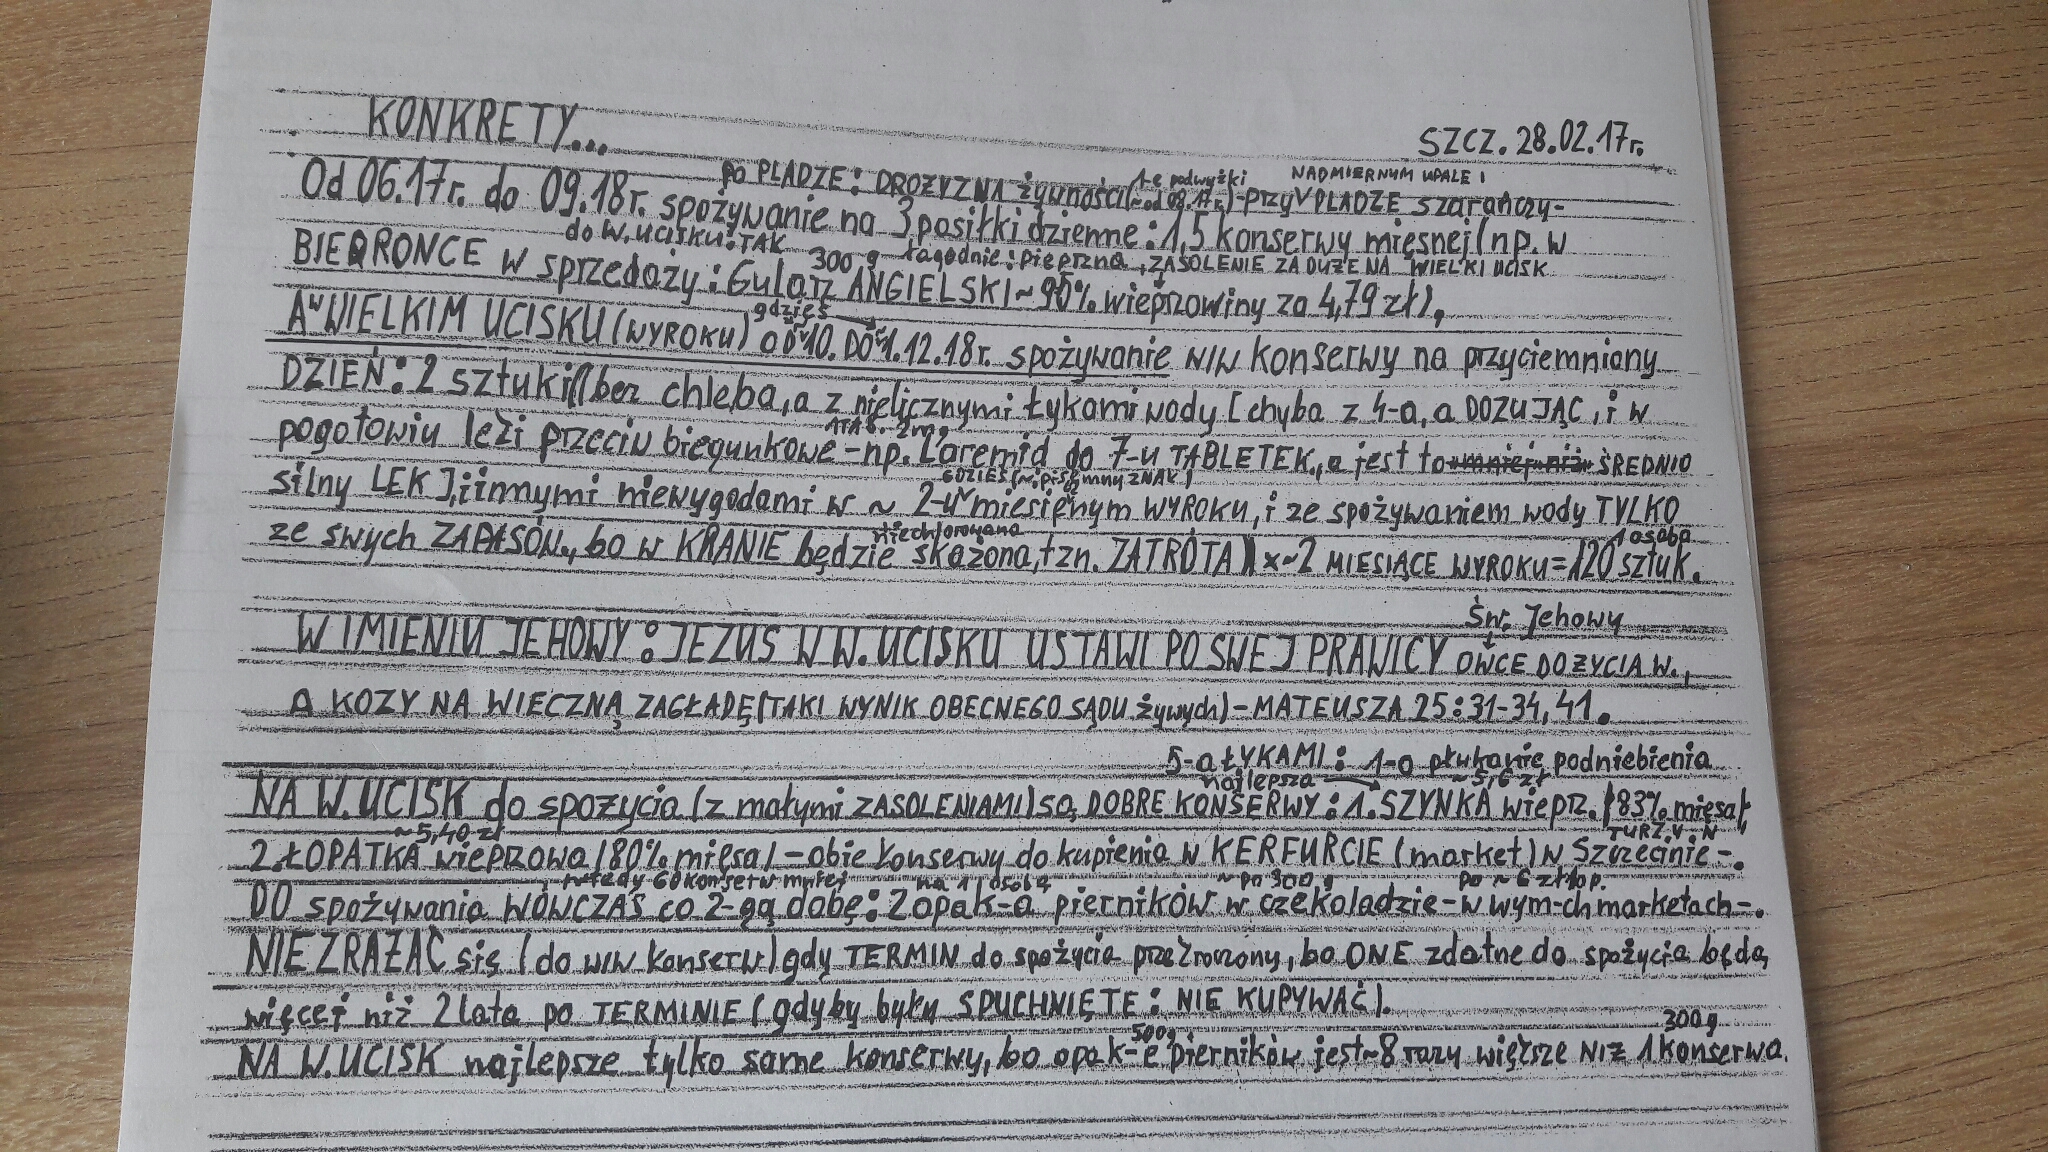 KONKRETY...
SZCZ. 28.02.17r.
po PLADZE: DROŻYZNA żywności (1-e podwyżki ~od 08.17r.)-przy V PLADZE szarańczy-
NADMIERNYM UPALE!
Od 06.17r. do 09.18r. spożywanie na 3 posiłki dzienne: 1,5 konserwy mięsnej (np. w
do W. UCISKU: TAK 300 g łagodnie: pieprzna, ZASOLENIE ZA DUŻE NA WIELKI UCISK
BIEDRONCE w sprzedaży: Gularz ANGIELSKI ~ 90% wieprzowiny za 4,79 zł),
gdzieś
A W WIELKIM UCISKU (WYROKU) OD 10. DO 1.12.18r. spożywanie w/w konserwy na przyciemniany
DZIEŃ: 2 sztuki (bez chleba, a z nielicznymi łykami wody [chyba z 4-a, a DOZUJĄC, i w
2mg
pogotowiu leży przeciw biegunkowe -np. Laremid do 7-u TABLETEK, a jest to mniej niż ŚREDNIO
GDZIEŚ ZNAK)
silny LEK], i innymi niewygodami w ~ 2-u miesięcznym WYROKU, i ze spożywaniem wody TYLKO
niechlorowana 1 osoba
ze swych ZAPASÓW, bo w KRANIE będzie skażona, tzn. ZATRUTA) x ~2 MIESIĄCE WYROKU = 120 sztuk.
Św. Jehowy
W IMIENIU JEHOWY: JEZUS W W. UCISKU USTAWI PO SWEJ PRAWICY OWCE DO ŻYCIA W.,
A KOZY NA WIECZNĄ ZAGŁADĘ (TAKI WYNIK OBECNEGO SĄDU żywych) - MATEUSZA 25:31-34,41.
5-a ŁYKAMI: 1-o płukanie podniebienia
najlepsza ~5,6 zł
NA W. UCISK do spożycia (z małymi ZASOLENIAMI) są DOBRE KONSERWY: 1. SZYNKA wieprz. (83% mięsa),
~5,40 zł TURZ.
2. ŁOPATKA wieprzowa (80% mięsa) - obie konserwy do kupienia w KERFURCIE (market) w Szczecinie-.
wtedy 60 konserw mniej na 1 osobę ~ po 300 g po ~ 6 zł
DO spożywania WÓWCZAS co 2-gą dobę: 2 opak-a pierników w czekoladzie - w wym-ch marketach-.
NIE ZRAŻAĆ się (do w/w konserw) gdy TERMIN do spożycia przeterminowany, bo ONE zdatne do spożycia będą
więcej niż 2 lata po TERMINIE (gdyby były SPUCHNIĘTE: NIE KUPYWAĆ).
500g 300g
NA W. UCISK najlepsze tylko same konserwy, bo opak-e pierników jest ~8 razy większe NIŻ 1 konserwa.